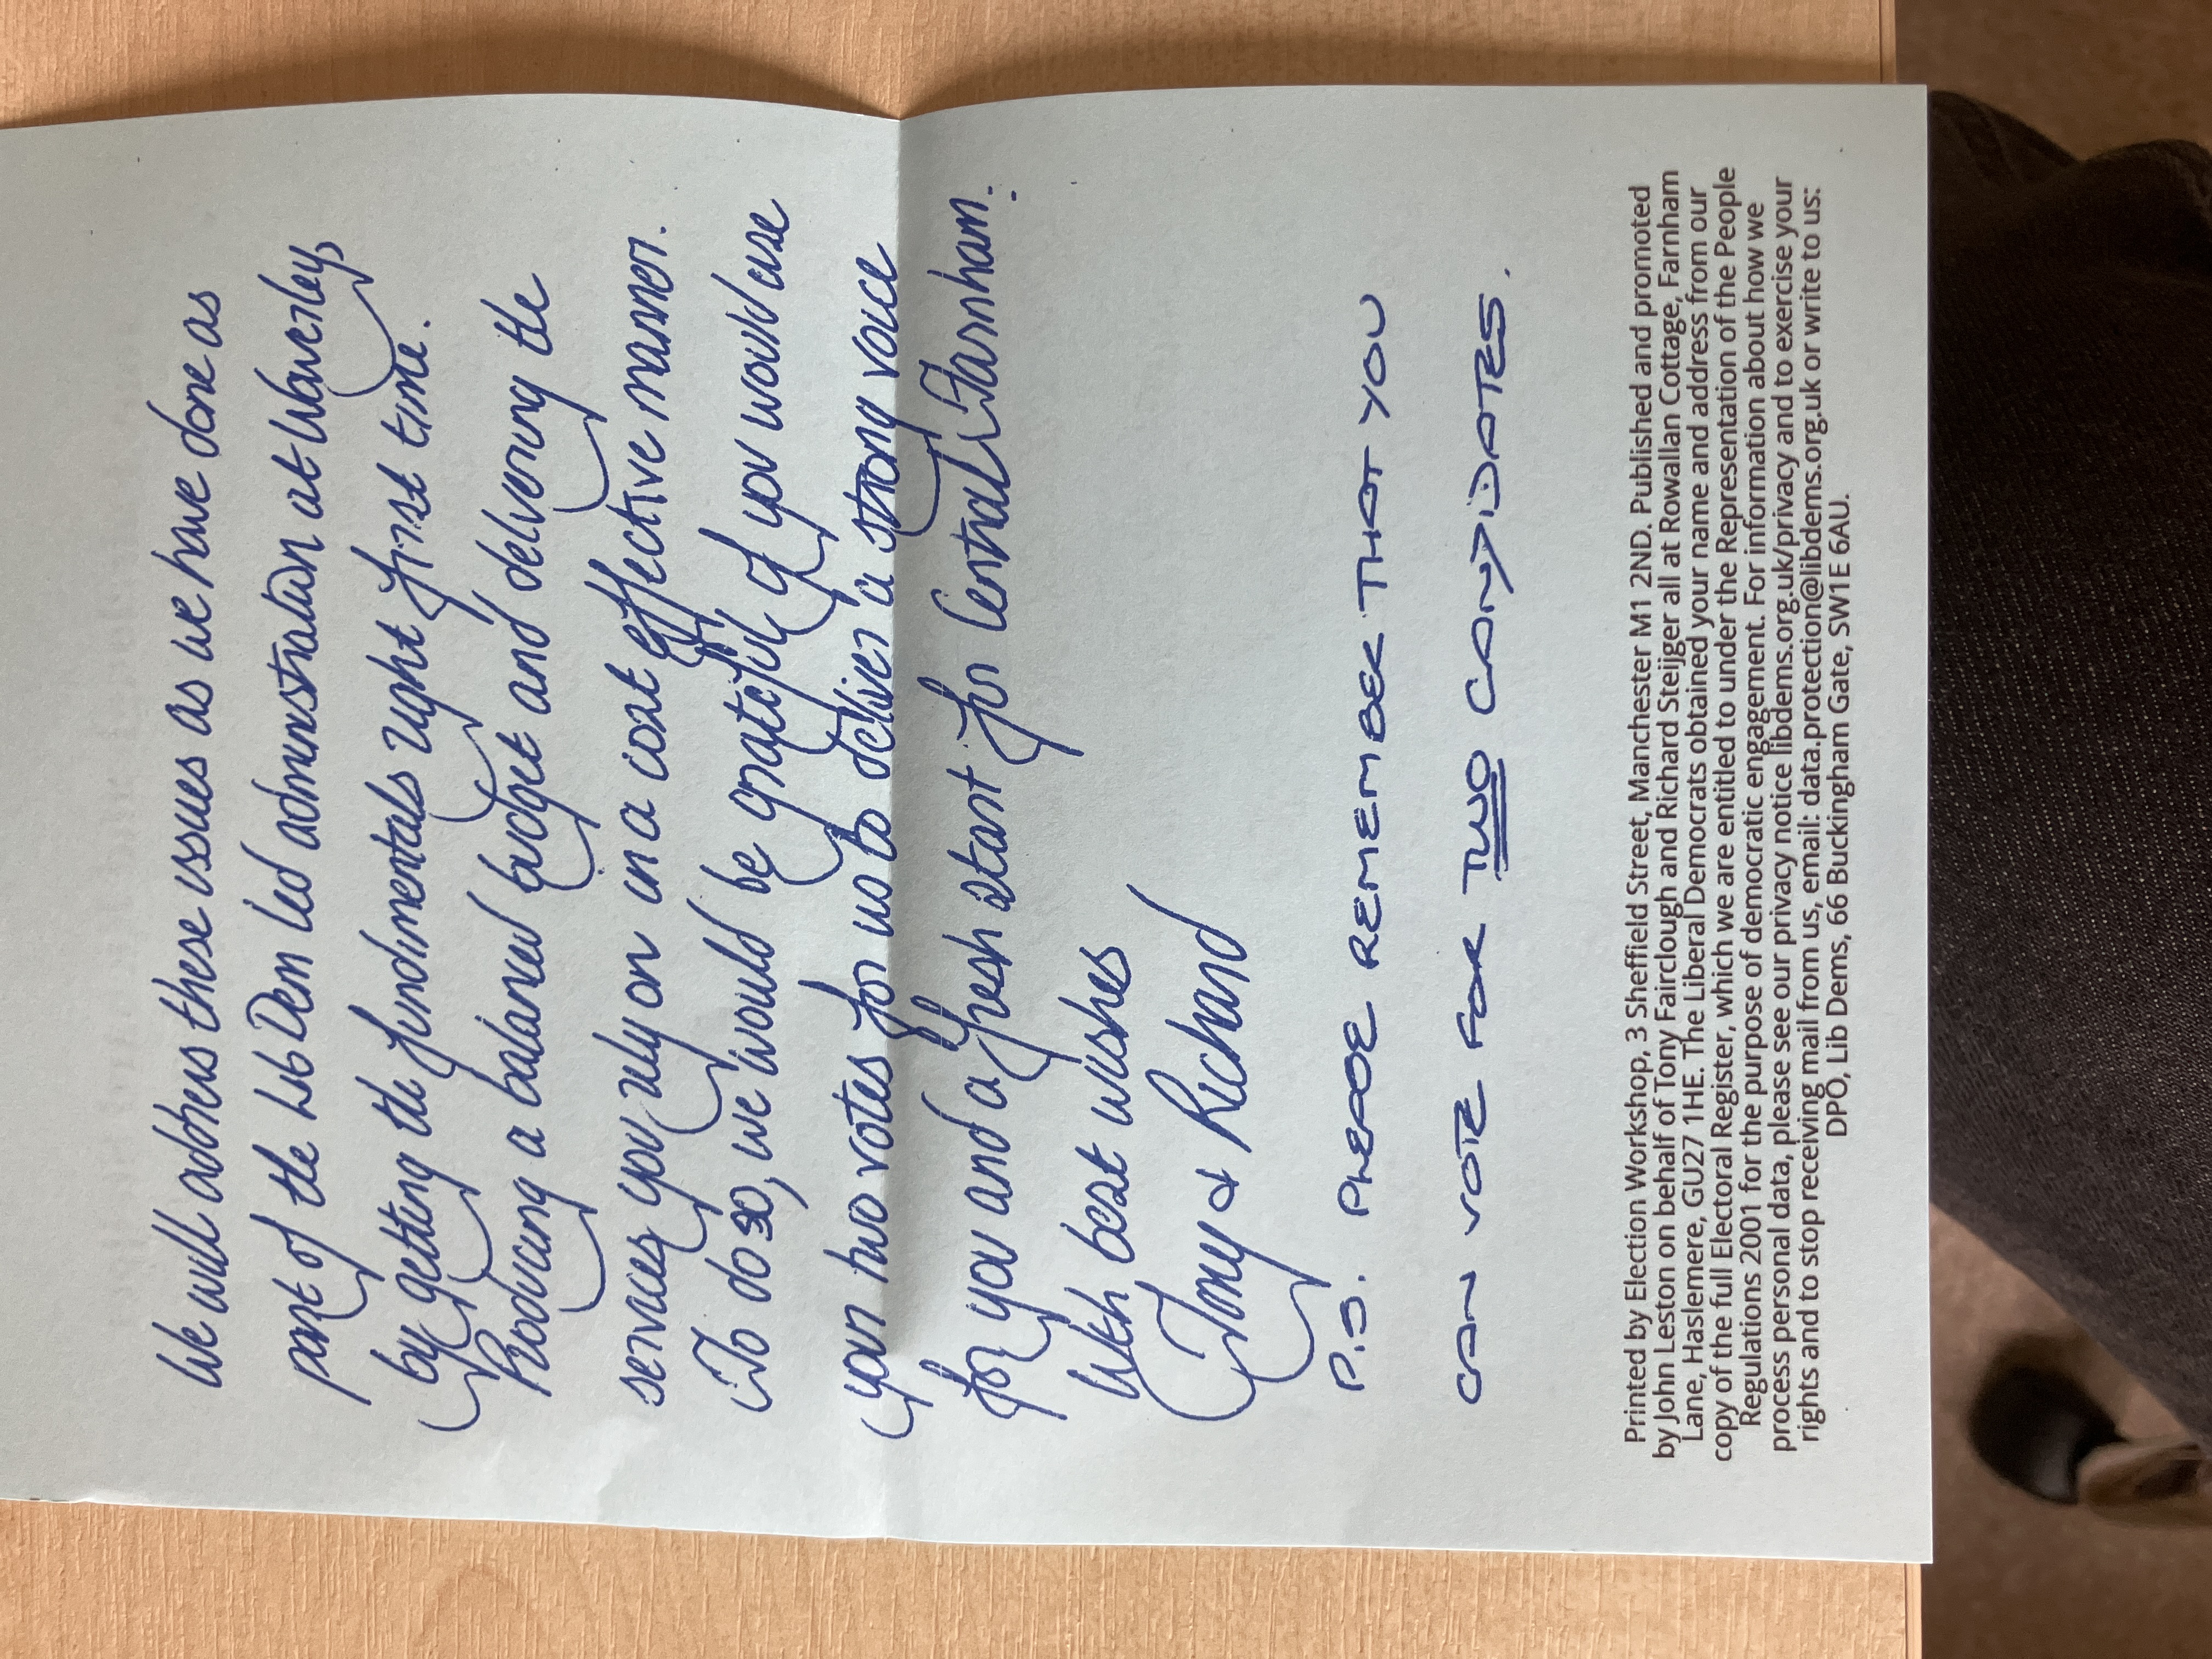 We will address these issues as we have done as
part of the Lib Dem led administration at Waverley,
by getting the fundimentals right first time.
Producing a balanced budget and delivering the
services you rely on in a cost effective manner.
To do so, we would be grateful if you would use
your two votes for us to deliver a strong voice
for you and a fresh start for Central Farnham.
With best wishes
Tony & Richard
P.S. PLEASE REMEMBER THAT YOU
CAN VOTE FOR TWO CANDIDATES.
Printed by Election Workshop, 3 Sheffield Street, Manchester M1 2ND. Published and promoted
by John Leston on behalf of Tony Fairclough and Richard Steijger all at Rowallan Cottage, Farnham
Lane, Haslemere, GU27 1HE. The Liberal Democrats obtained your name and address from our
copy of the full Electoral Register, which we are entitled to under the Representation of the People
Regulations 2001 for the purpose of democratic engagement. For information about how we
process personal data, please see our privacy notice libdems.org.uk/privacy and to exercise your
rights and to stop receiving mail from us, email: data.protection@libdems.org.uk or write to us:
DPO, Lib Dems, 66 Buckingham Gate, SW1E 6AU.